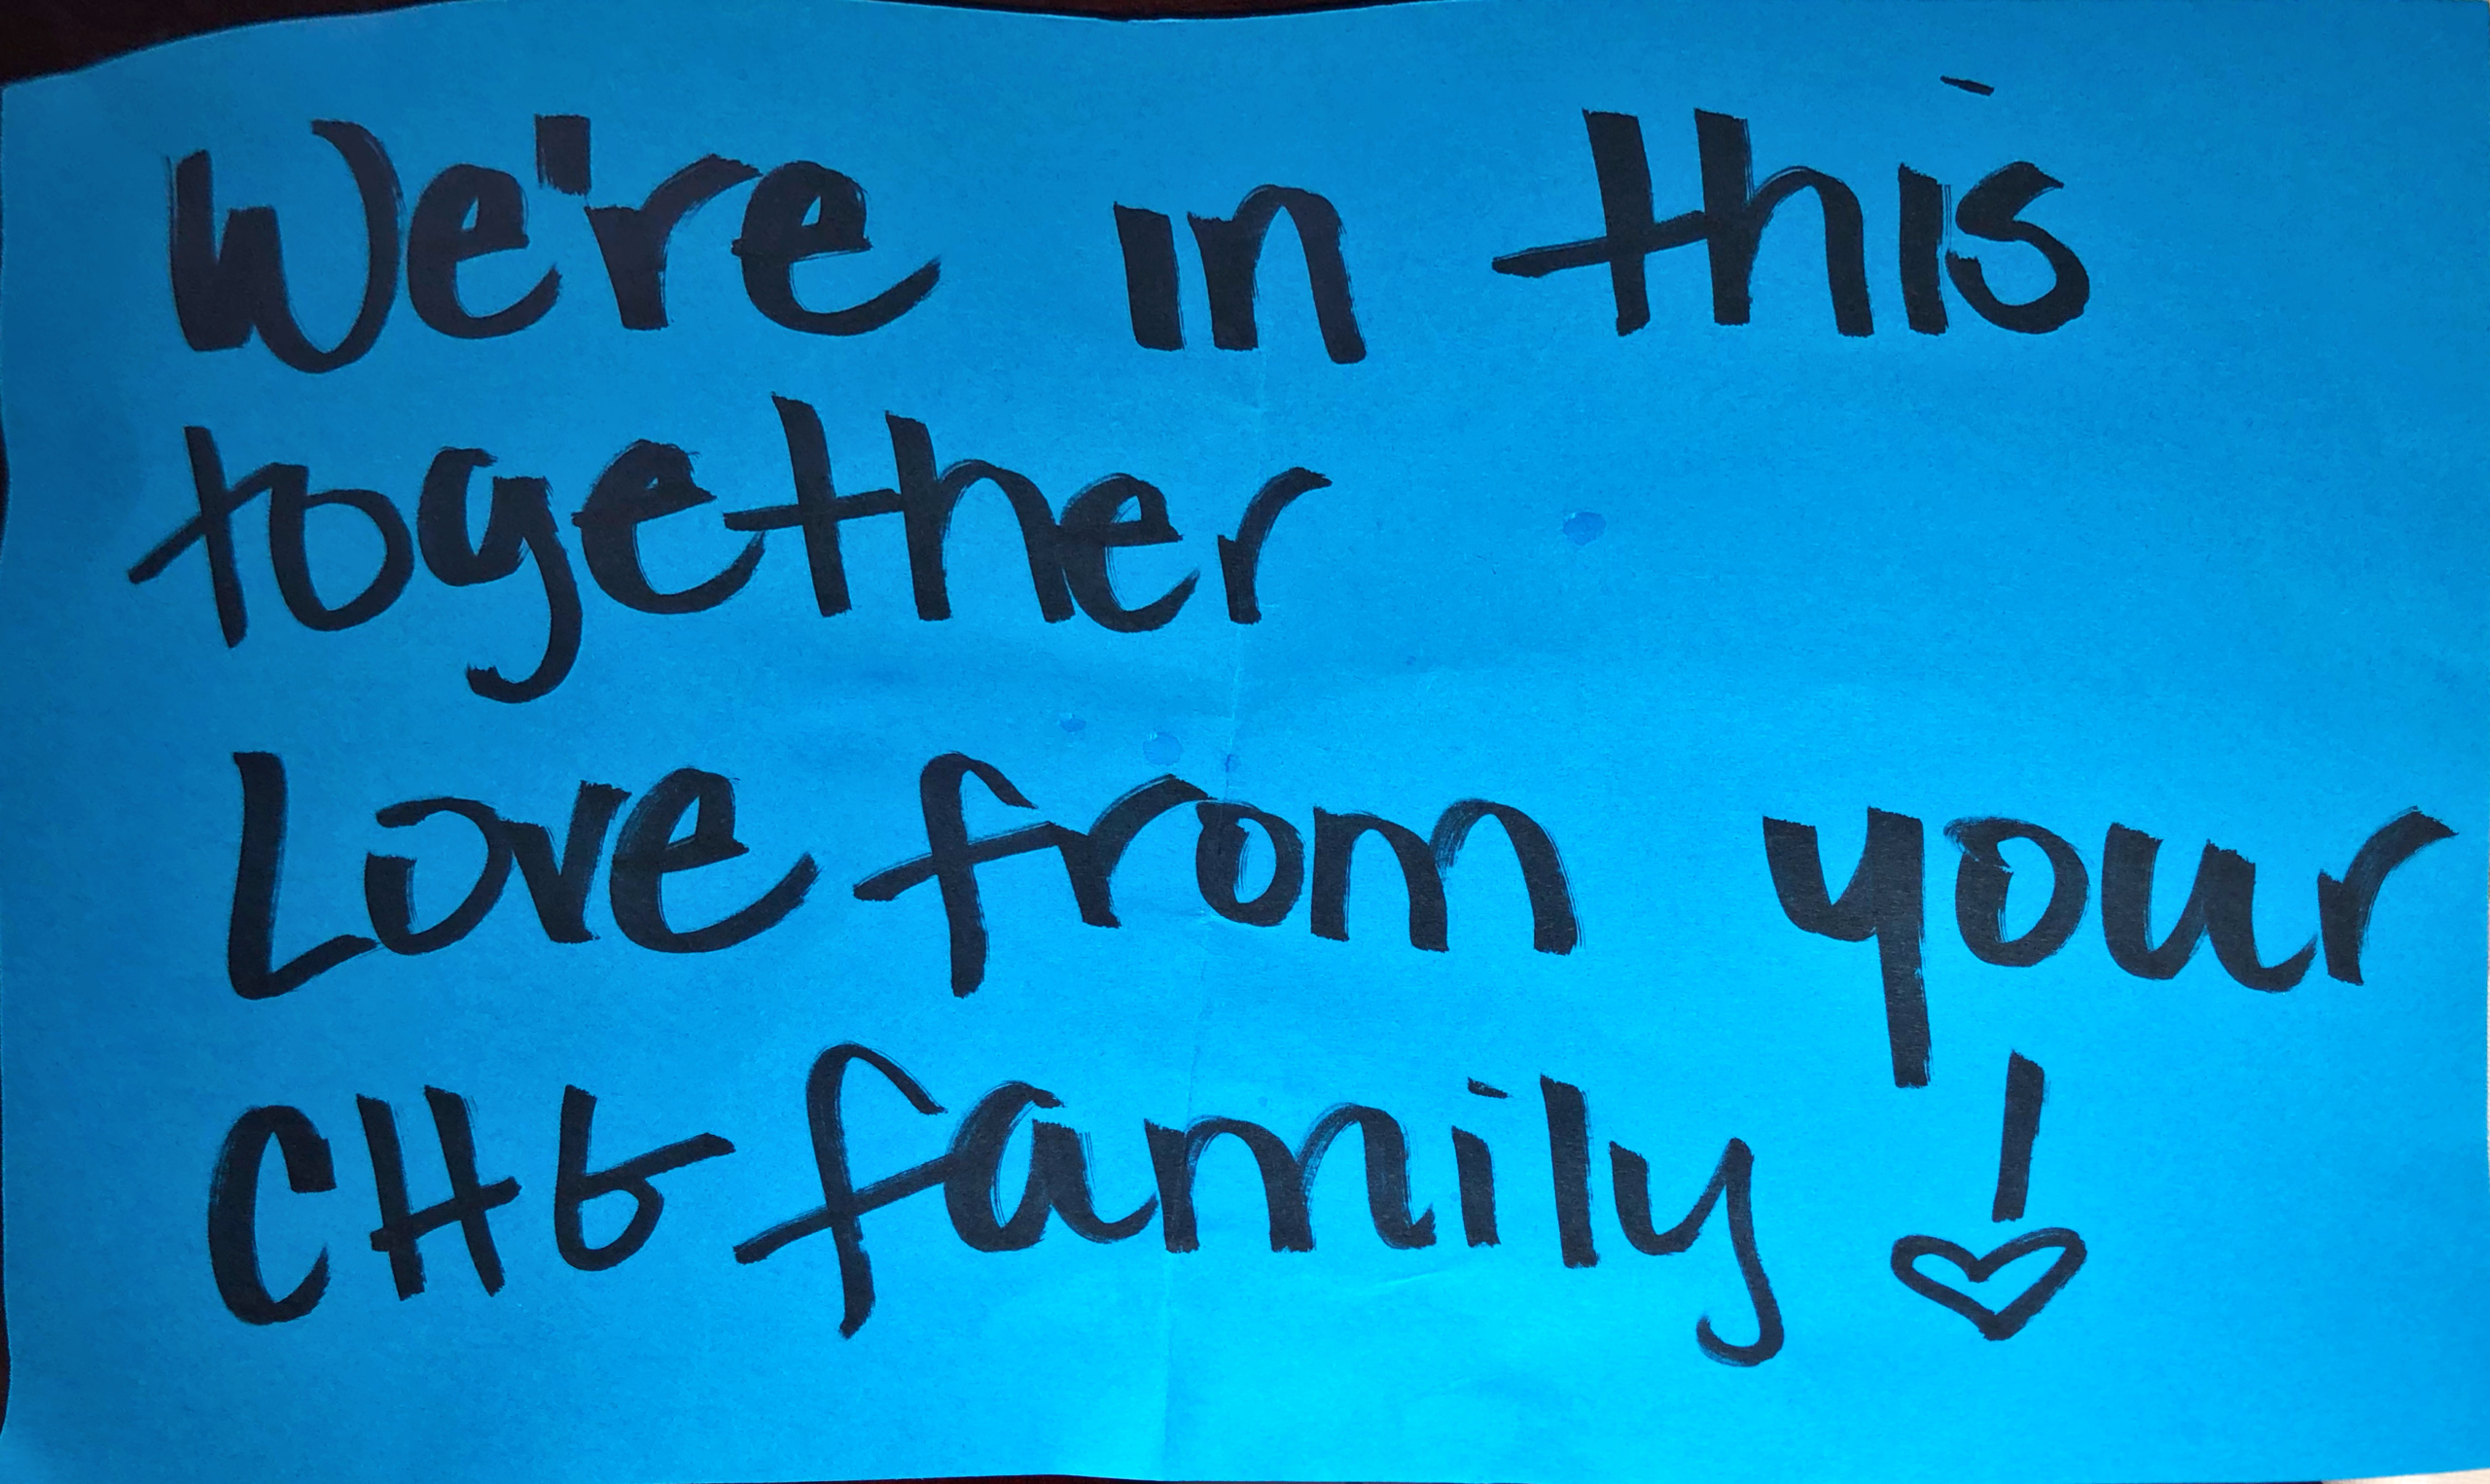 We're in this
together
Love from your
CHG family!